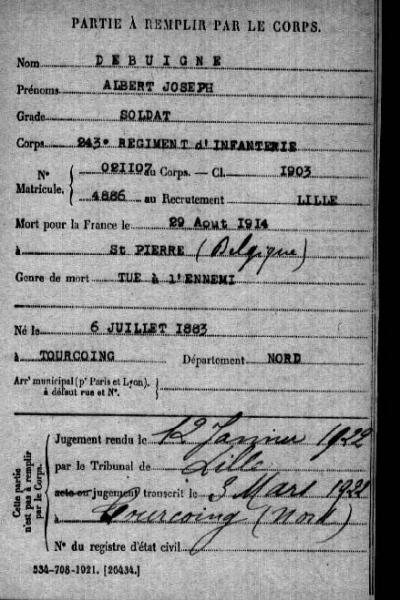 PARTIE À REMPLIR PAR LE CORPS.
Nom DEBUIGNE
Prénoms ALBERT JOSEPH
Grade SOLDAT
Corps 243e REGIMENT d'INFANTERIE
N° Matricule. { 021107 au Corps. — Cl. 1903
4886 au Recrutement LILLE
Mort pour la France le 29 Aout 1914
à St PIERRE (Belgique)
Genre de mort TUE à l'ENNEMI
Né le 6 JUILLET 1883
à TOURCOING Département NORD
Arrt municipal (pr Paris et Lyon), à défaut rue et N°. }
Cette partie n'est pas à remplir par le Corps.
Jugement rendu le 12 Janvier 1922
par le Tribunal de Lille
acte ou jugement transcrit le 3 Mars 1922
à Tourcoing (Nord)
N° du registre d'état civil
534-708-1921. [26434.]